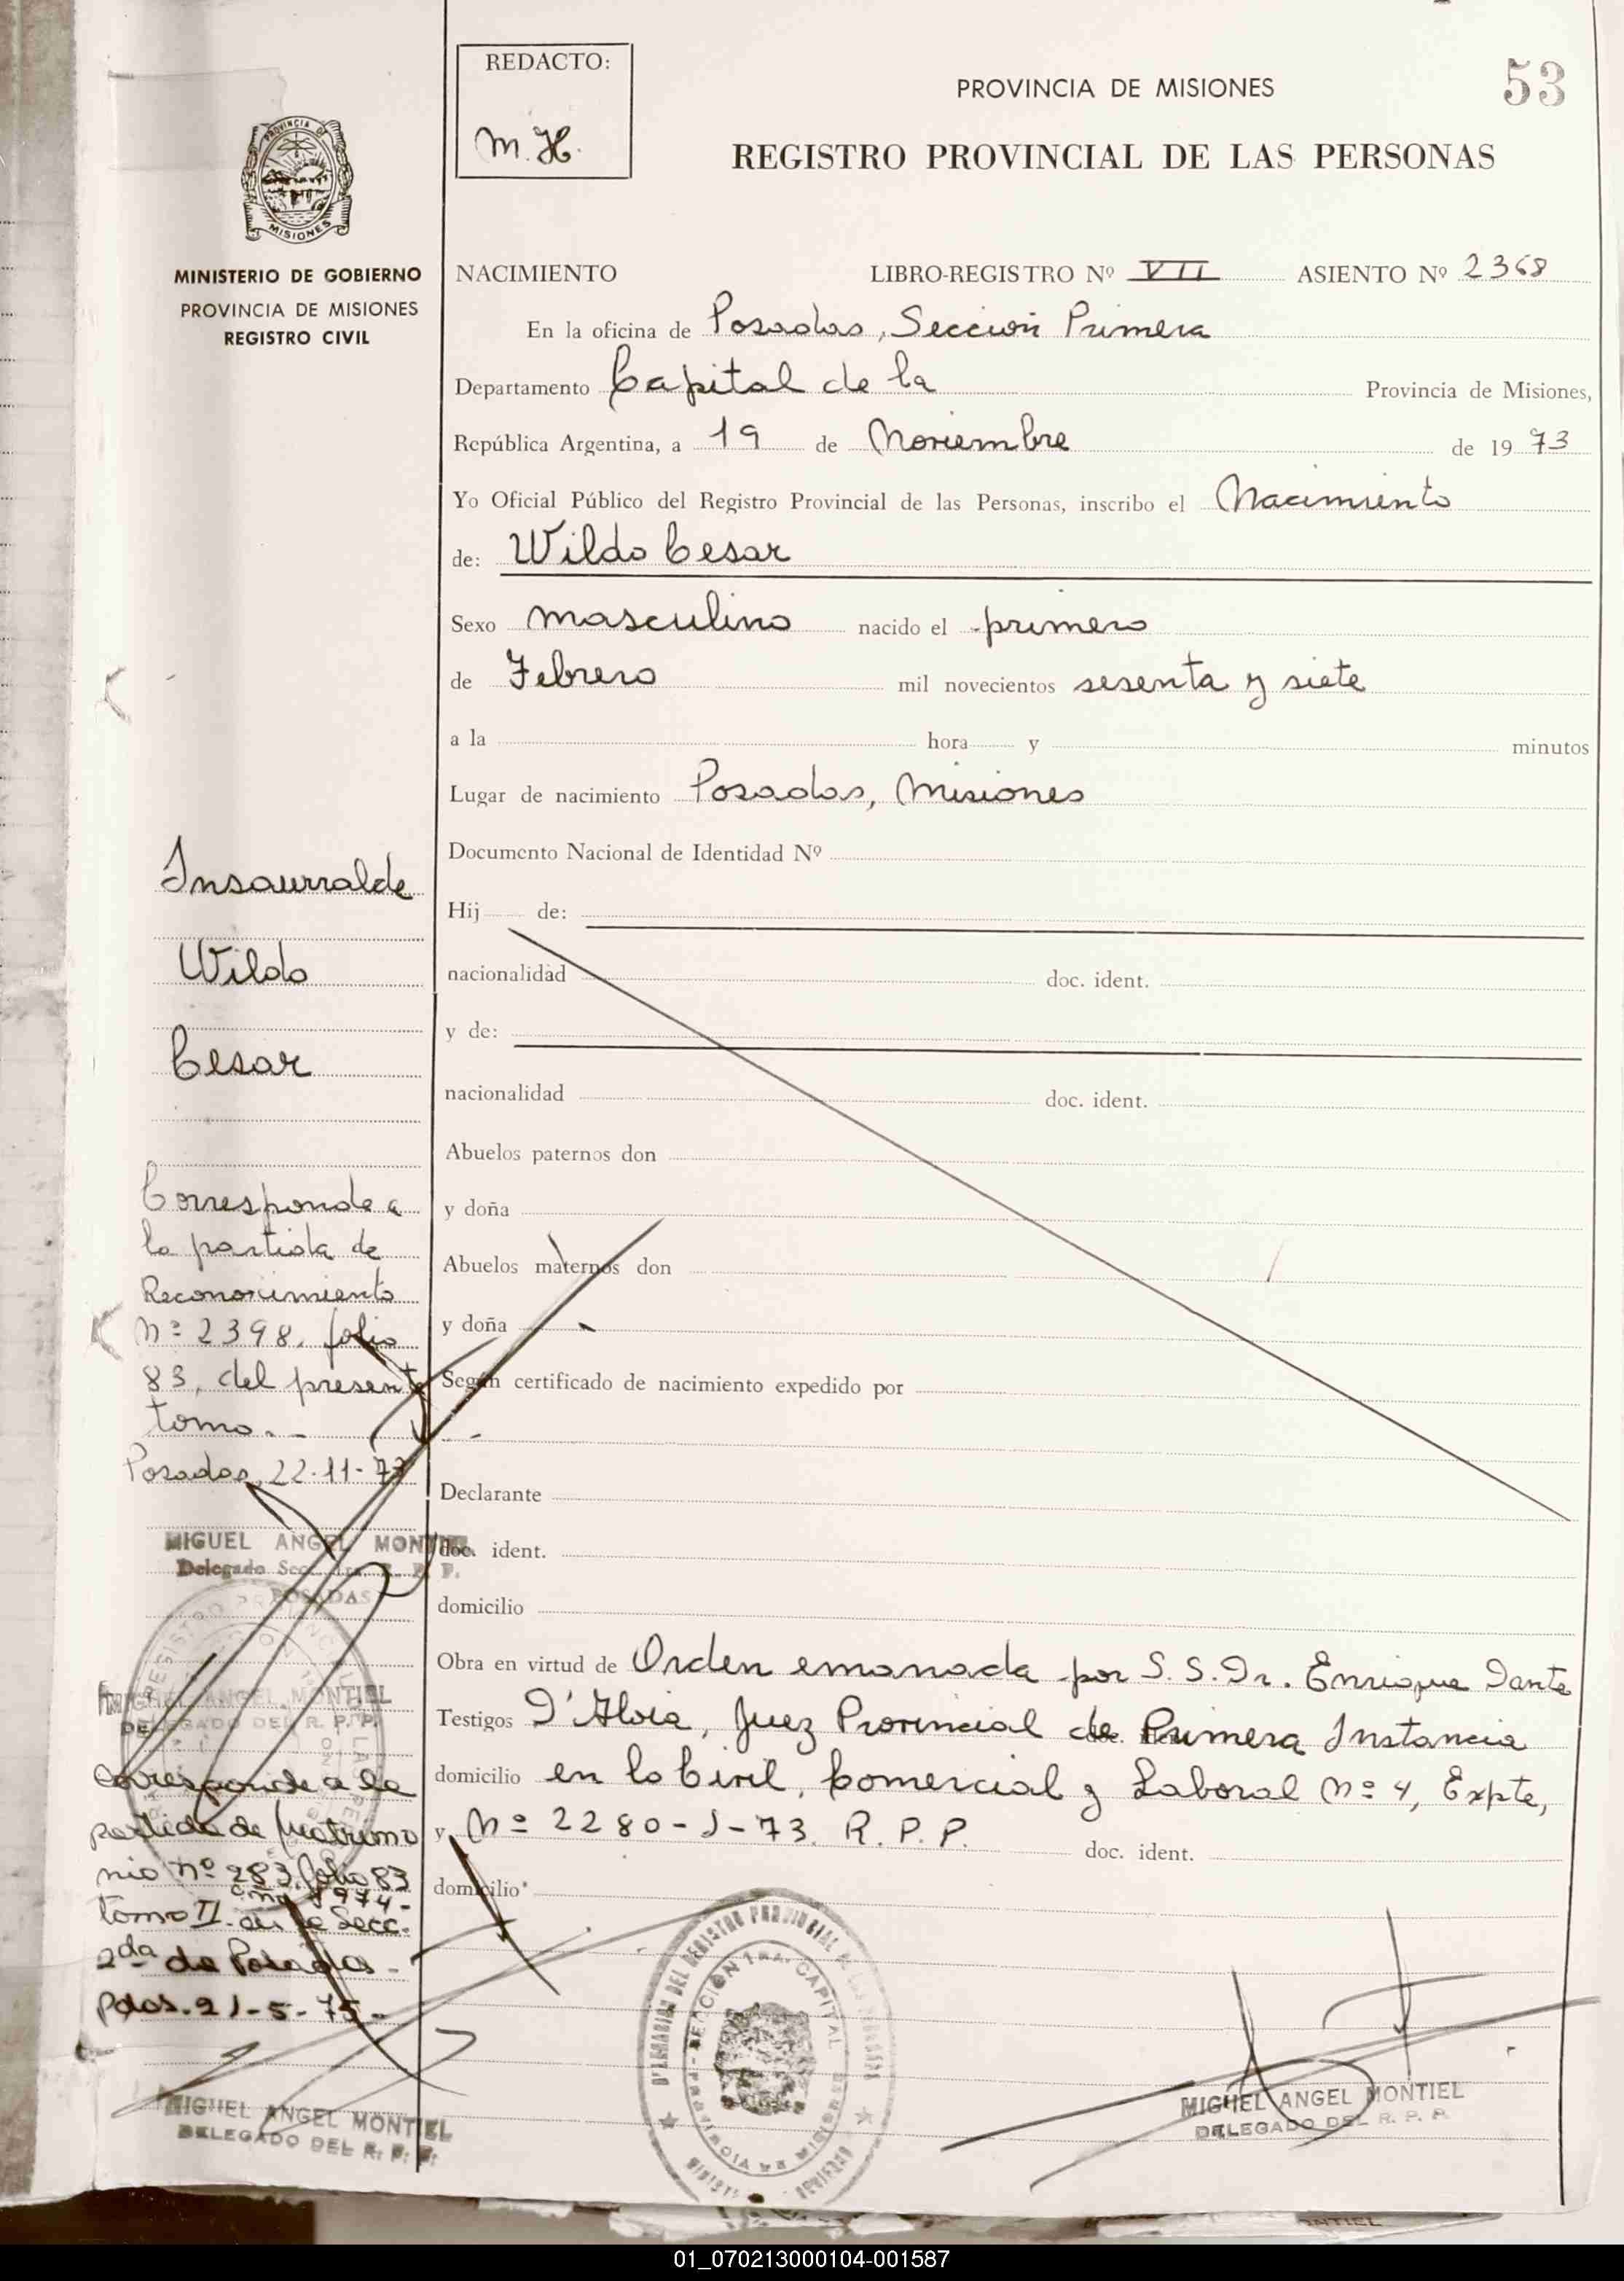 REDACTO:
M. H.
PROVINCIA DE MISIONES
53
REGISTRO PROVINCIAL DE LAS PERSONAS
PROVINCIA DE
MISIONES
MINISTERIO DE GOBIERNO
PROVINCIA DE MISIONES
REGISTRO CIVIL
NACIMIENTO LIBRO-REGISTRO Nº VII ASIENTO Nº 2368
En la oficina de Posadas, Sección Primera
Departamento Capital de la Provincia de Misiones,
República Argentina, a 19 de Noviembre de 1973
Yo Oficial Público del Registro Provincial de las Personas, inscribo el Nacimiento
de: Wildo Cesar
Sexo masculino nacido el primero
de Febrero mil novecientos sesenta y siete
a la hora y minutos
Lugar de nacimiento Posadas, Misiones
Documento Nacional de Identidad Nº
Hij de:
nacionalidad doc. ident.
y de:
nacionalidad doc. ident.
Abuelos paternos don
y doña
Abuelos maternos don
y doña
Según certificado de nacimiento expedido por
Declarante
doc. ident.
domicilio
Obra en virtud de Orden emanada por S. S. Dr. Enrique Dante
Testigos D'Aloia, Juez Provincial de Primera Instancia
domicilio en lo Civil, Comercial y Laboral Nº 4, Expte,
y Nº 2280-J-73. R. P. P. doc. ident.
domicilio
Insaurralde
Wildo
Cesar
Corresponde a
la partida de
Reconocimiento
Nº 2398, folio
83, del presente
tomo.-
Posadas, 22-11-73
MIGUEL ANGEL MONTIEL
Delegado
POSADAS
MIGUEL ANGEL MONTIEL
DELEGADO DEL R. P. P.
Corresponde a la
partida de Matrimo
nio nº 283, folio 83
año 1974-
tomo II. de la Secc.
2da de Posadas-
Pdas. 21-5-75-
MIGUEL ANGEL MONTIEL
DELEGADO DEL R. P. P.
SECCIÓN 1ra. CAPITAL
MIGUEL ANGEL MONTIEL
DELEGADO DEL R. P. P.
01_070213000104-001587